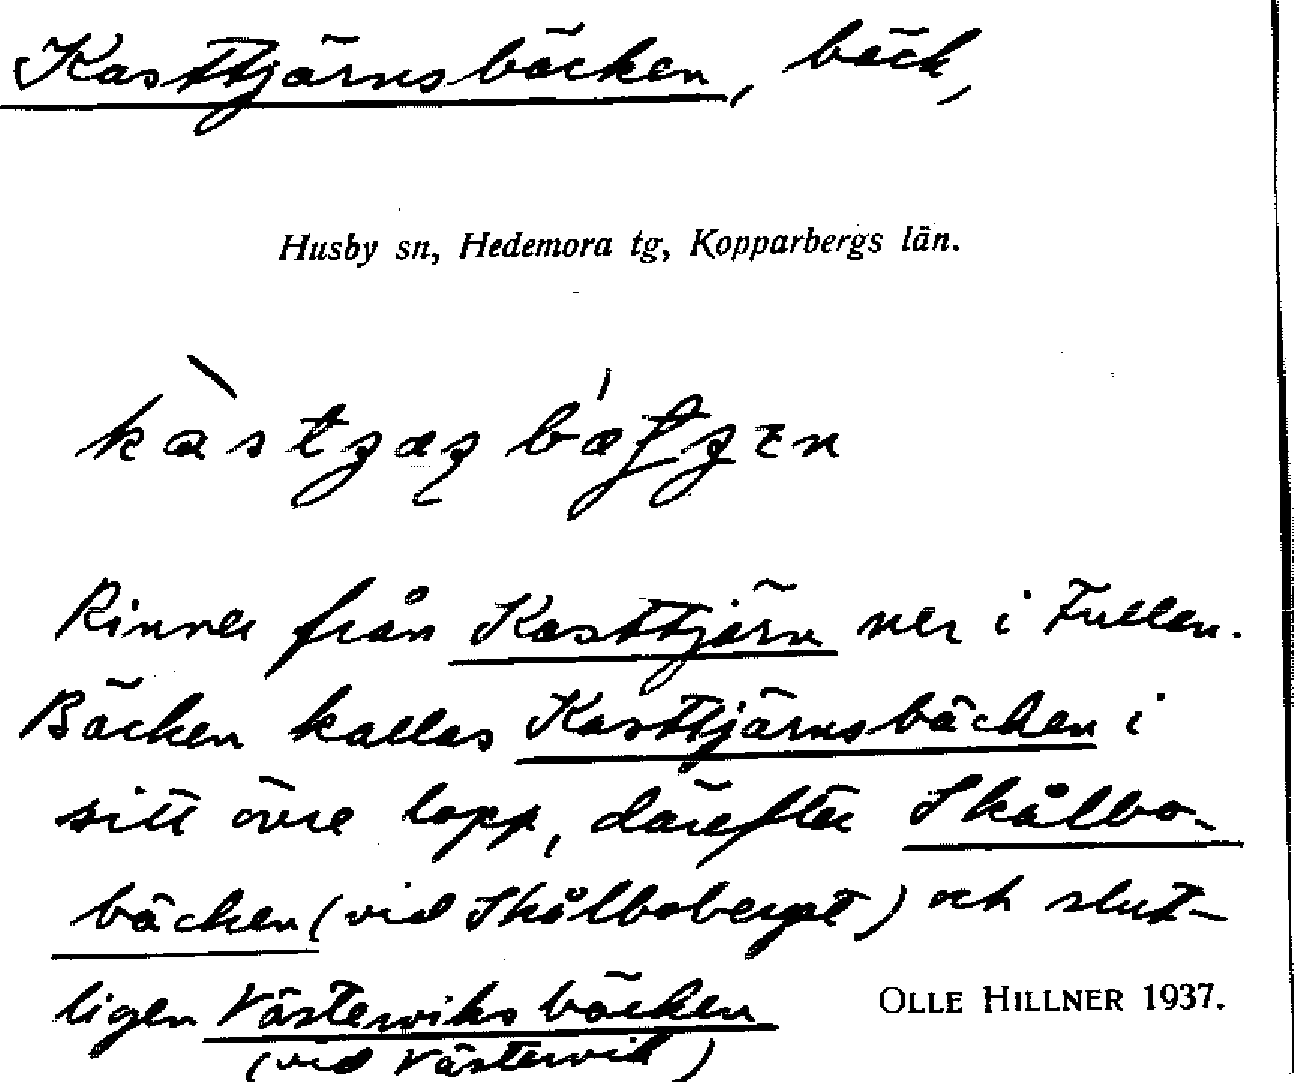 Kasttjärnsbäcken, bäck,
Husby sn, Hedemora tg, Kopparbergs län.
Rinner från Kasttjärn ner i Fullen.
Bäcken kallas Kasttjärnsbäcken i
sitt övre lopp, därefter Skålbo-
bäcken (vid Skålboberget) och slut-
ligen Västerviksbäcken
OLLE HILLNER 1937.
(vid Västervik)